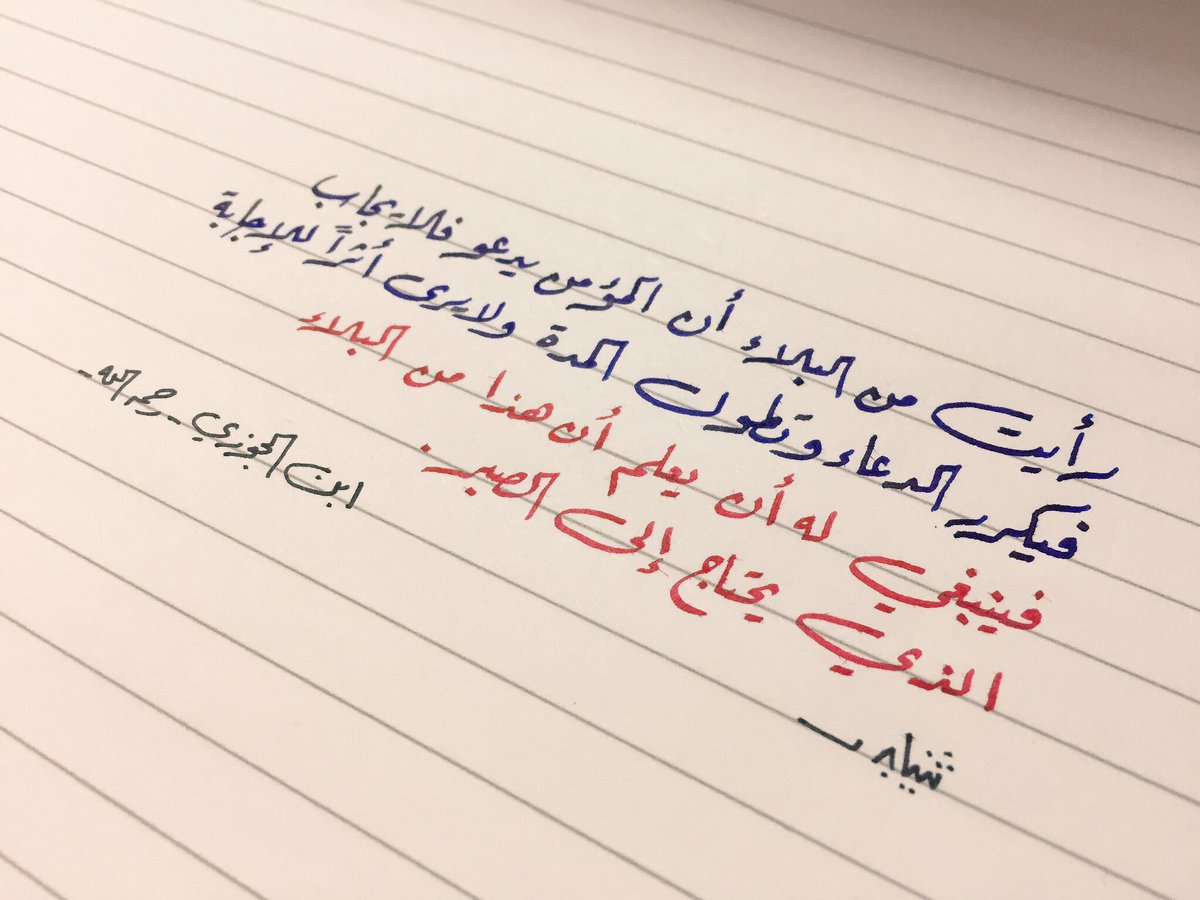 رأيت من البلاء أن المؤمن يدعو فلا يجاب
فيكرر الدعاء وتطول المدة ولا يرى أثراً للإجابة
فينبغي له أن يعلم أن هذا من البلاء
الذي يحتاج إلى الصبر.
ابن الجوزي - رحمه الله -